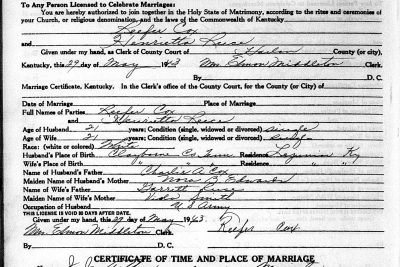 To Any Person Licensed to Celebrate Marriages:
You are hereby authorized to join together in the Holy State of Matrimony, according to the rites and ceremonies
of your Church, or religious denomination, and the laws of the Commonwealth of Kentucky,
Keefer Cox
& Henrietta Reece
Given under my hand, as Clerk of County Court of Harlan County (or city),
Kentucky, this 29 day of May 1943 Mrs. Elmon Middleton Clerk.
By D. C.
Marriage Certificate, Kentucky. In the Clerk's office of the County Court, for the County (or City) of
Date of Marriage Place of Marriage
Full Names of Parties Keefer Cox
& Henrietta Reece
Age of Husband 21 years; Condition (single, widowed or divorced) single
Age of Wife 21 years; Condition (single, widowed or divorced) single
Race: (white or colored) White
Husband's Place of Birth Clayborne Co Tenn Residence Ky
Wife's Place of Birth Residence " "
Name of Husband's Father Charlie A Cox
Maiden Name of Husband's Mother Nora B. Edwards
Name of Wife's Father Garrett
Maiden Name of Wife's Mother Smith
Occupation of Husband U S Army
THIS LICENSE IS VOID 30 DAYS AFTER DATE.
Given under my hand, this 29 day of May 1943. Keefer Cox
Mrs. Elmon Middleton Clerk.
By D. C.
CERTIFICATE OF TIME AND PLACE OF MARRIAGE